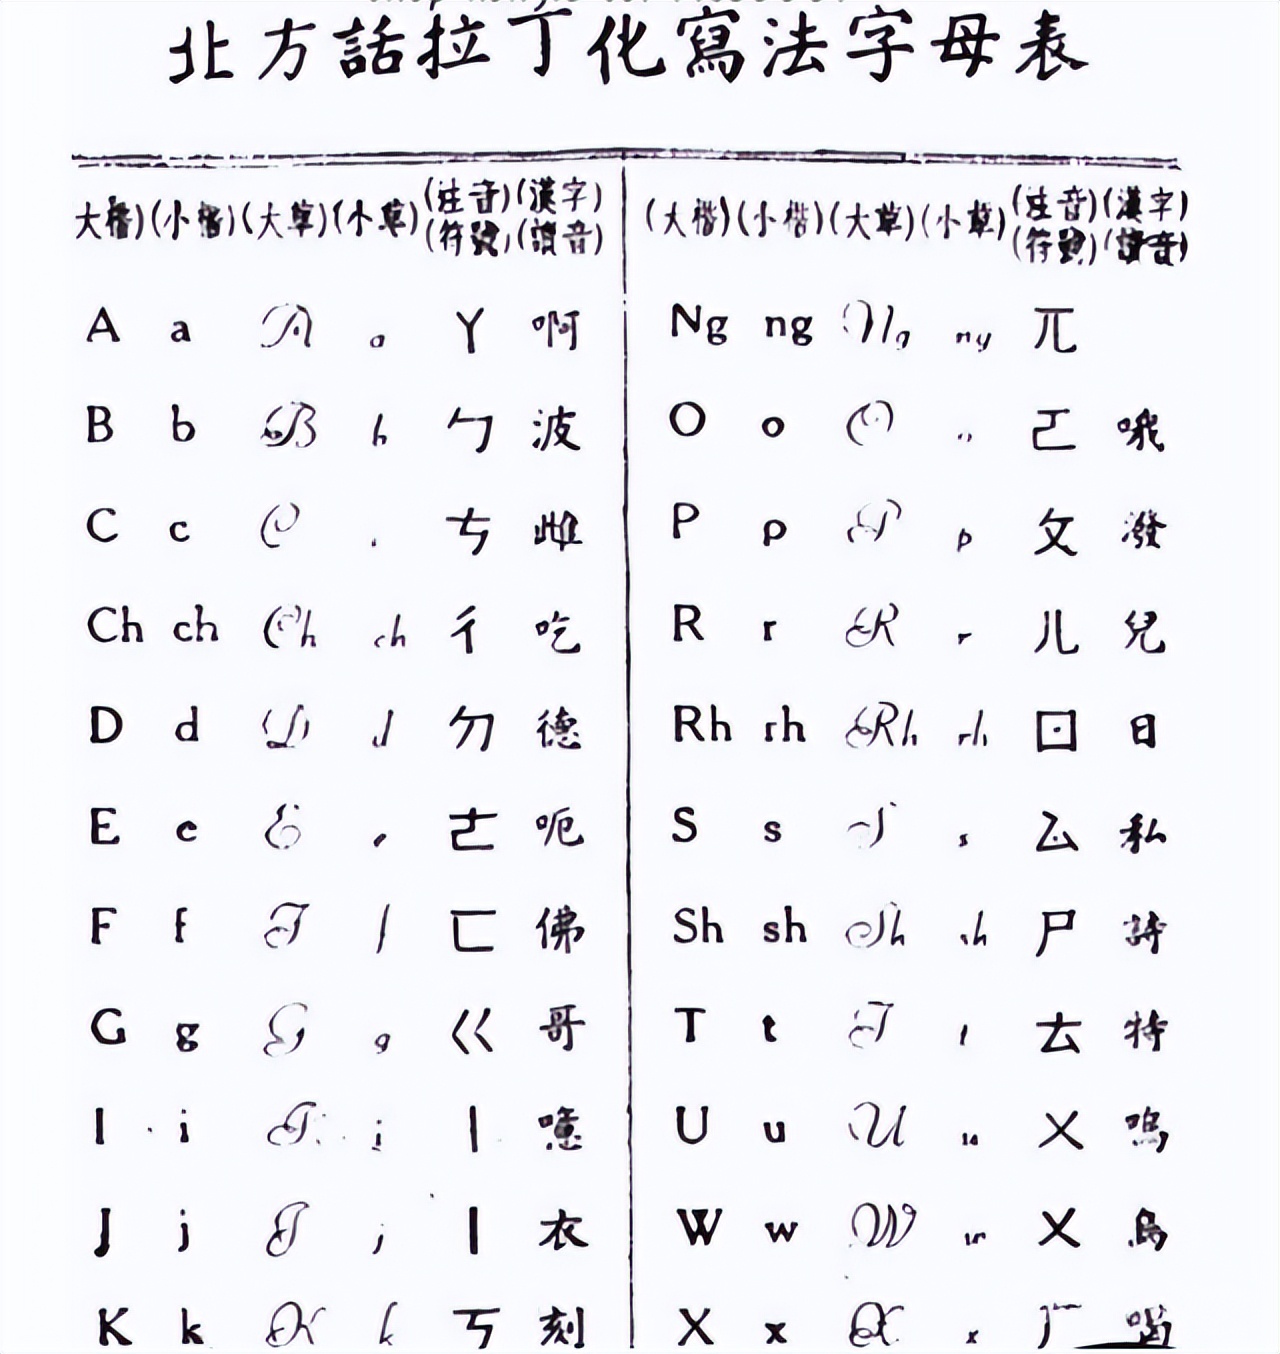 北方話拉丁化寫法字母表
大楷)(小楷)(大草)(小草)(注音)(漢字)
(符號)(讀音)
A a A a ㄚ 啊
B b B b ㄅ 波
C c C ㄘ 雌
Ch ch Ch ch ㄔ 吃
D d D d ㄉ 德
E e E e ㄜ 呃
F f F f ㄈ 佛
G g G g ㄍ 哥
I i I i ㄧ 噫
J j J j ㄧ 衣
K k K k ㄎ 刻
(大楷)(小楷)(大草)(小草)(注音)(漢字)
(符號)(讀音)
Ng ng Ng ng ㄫ
O o O o ㄛ 哦
P p P p ㄆ 潑
R r R r ㄦ 兒
Rh rh Rh rh ㄖ 日
S s S s ㄙ 私
Sh sh Sh sh ㄕ 詩
T t T t ㄊ 特
U u U u ㄨ 嗚
W w W w ㄨ 烏
X x X x ㄏ 喝